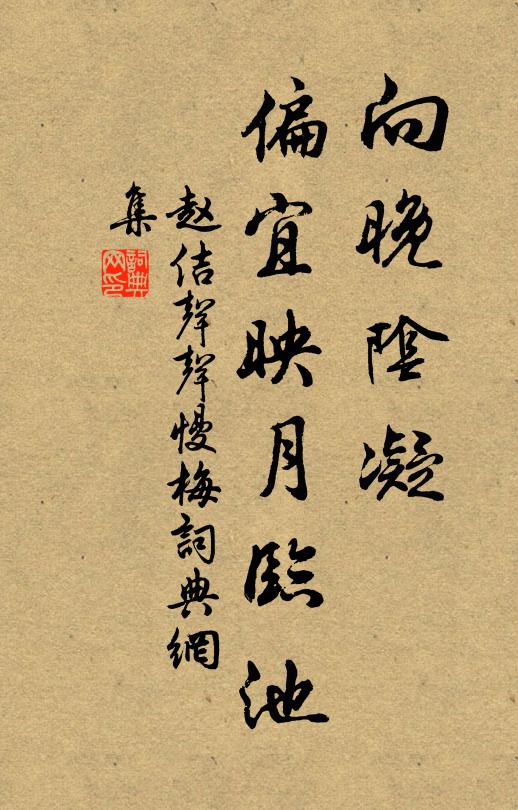 向晚陰凝
偏宜映月臨池
赵佶聲聲慢梅詞典網
集
詞典網印